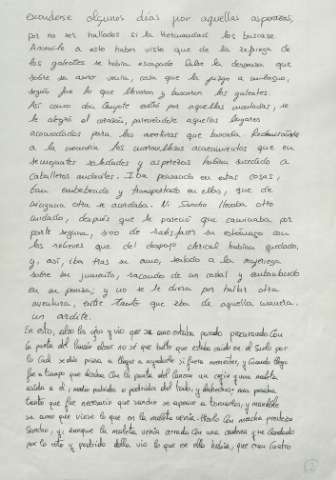 esconderse algunos días por aquellas asperezas,
por no ser hallados si la Hermandad los buscase.
Animóle a esto haber visto que de la refriega de
los galeotes se había escapado libre la despensa que
sobre su asno venía, cosa que la juzgó a milagro,
según fue lo que llevaron y buscaron los galeotes.
Así como don Quijote entró por aquellas montañas, se
le alegró el corazón, pareciéndole aquellos lugares
acomodados para las aventuras que buscaba. Reducíansele
a la memoria los maravillosos acaecimientos que en
semejantes soledades y asperezas habían sucedido a
caballeros andantes. Iba pensando en estas cosas,
tan embebecido y transportado en ellas, que de
ninguna otra se acordaba. Ni Sancho llevaba otro
cuidado, después que le pareció que caminaba por
parte segura, sino de satisfacer su estómago con
los relieves que del despojo clerical habían quedado,
y, así, iba tras su amo, sentado a la mujeriega
sobre su jumento, sacando de un costal y embaulando
en su panza; y no se le diera por hallar otra
aventura, entre tanto que iba de aquella manera,
un ardite.
En esto, alzó los ojos y vio que su amo estaba parado, procurando con
la punta del lanzón alzar no sé qué bulto que estaba caído en el suelo, por
lo cual se dio prisa a llegar a ayudarle si fuera menester, y cuando llegó
fue a tiempo que alzaba con la punta del lanzón un cojín y una maleta
asida a él, medio podridos o podridos del todo, y deshechos; mas pesaba
tanto, que fue necesario que Sancho se apease a tomarlos, y mandóle
su amo que viese lo que en la maleta venía. Hízolo con mucha presteza
Sancho, y, aunque la maleta venía cerrada con una cadena y su candado,
por lo roto y podrido della vio lo que en ella había, que eran cuatro